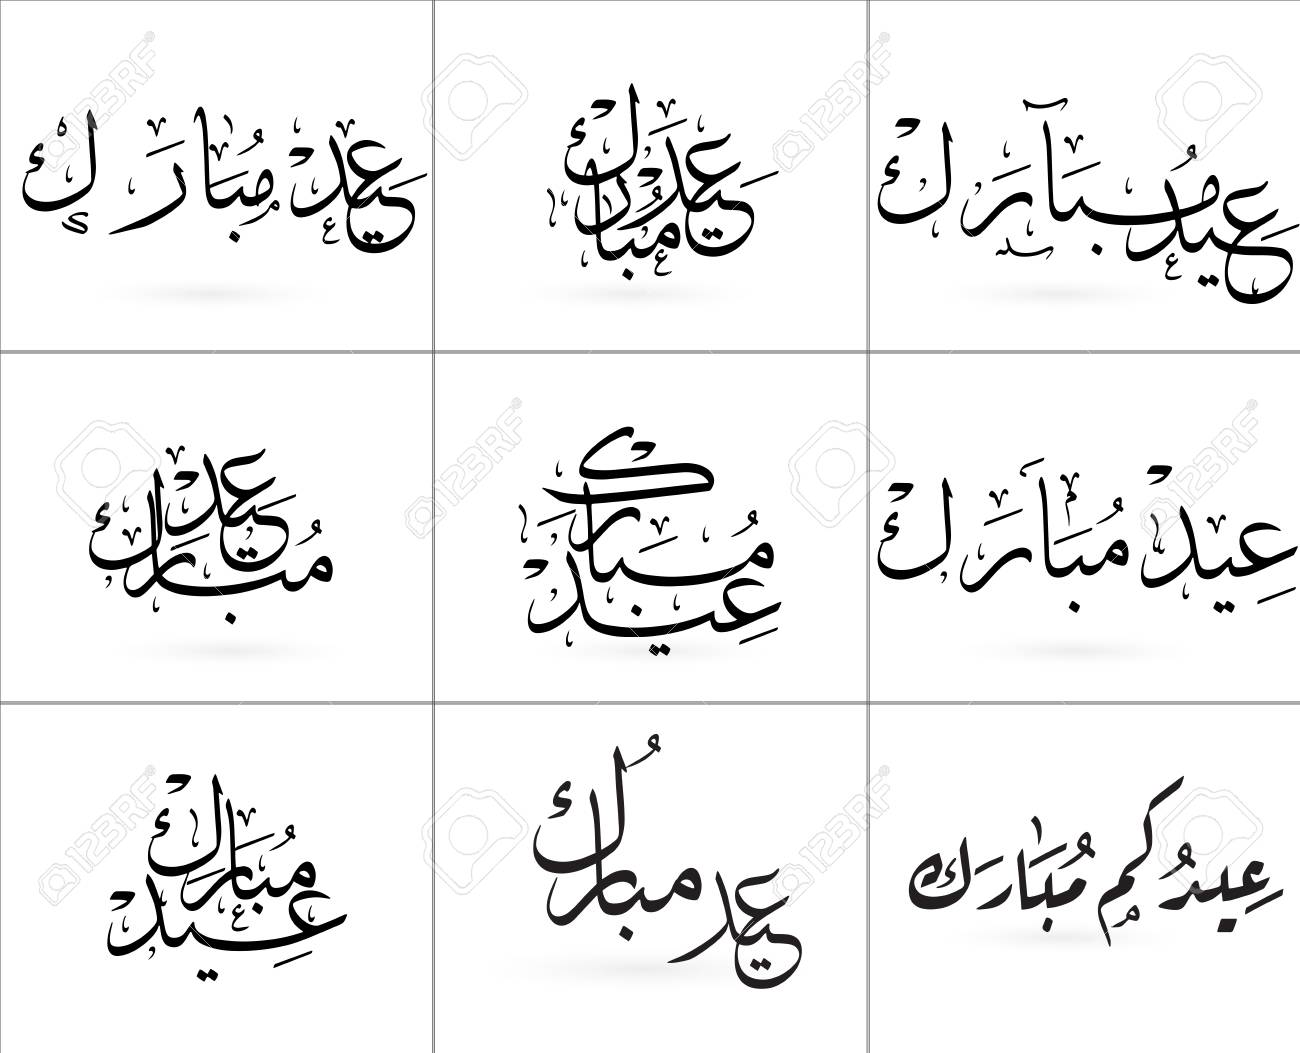 عيد مبارك
عيد مبارك
عيد مبارك
عيد مبارك
عيد مبارك
عيد مبارك
عيد مبارك
عيد مبارك
عيدكم مبارك
123RF